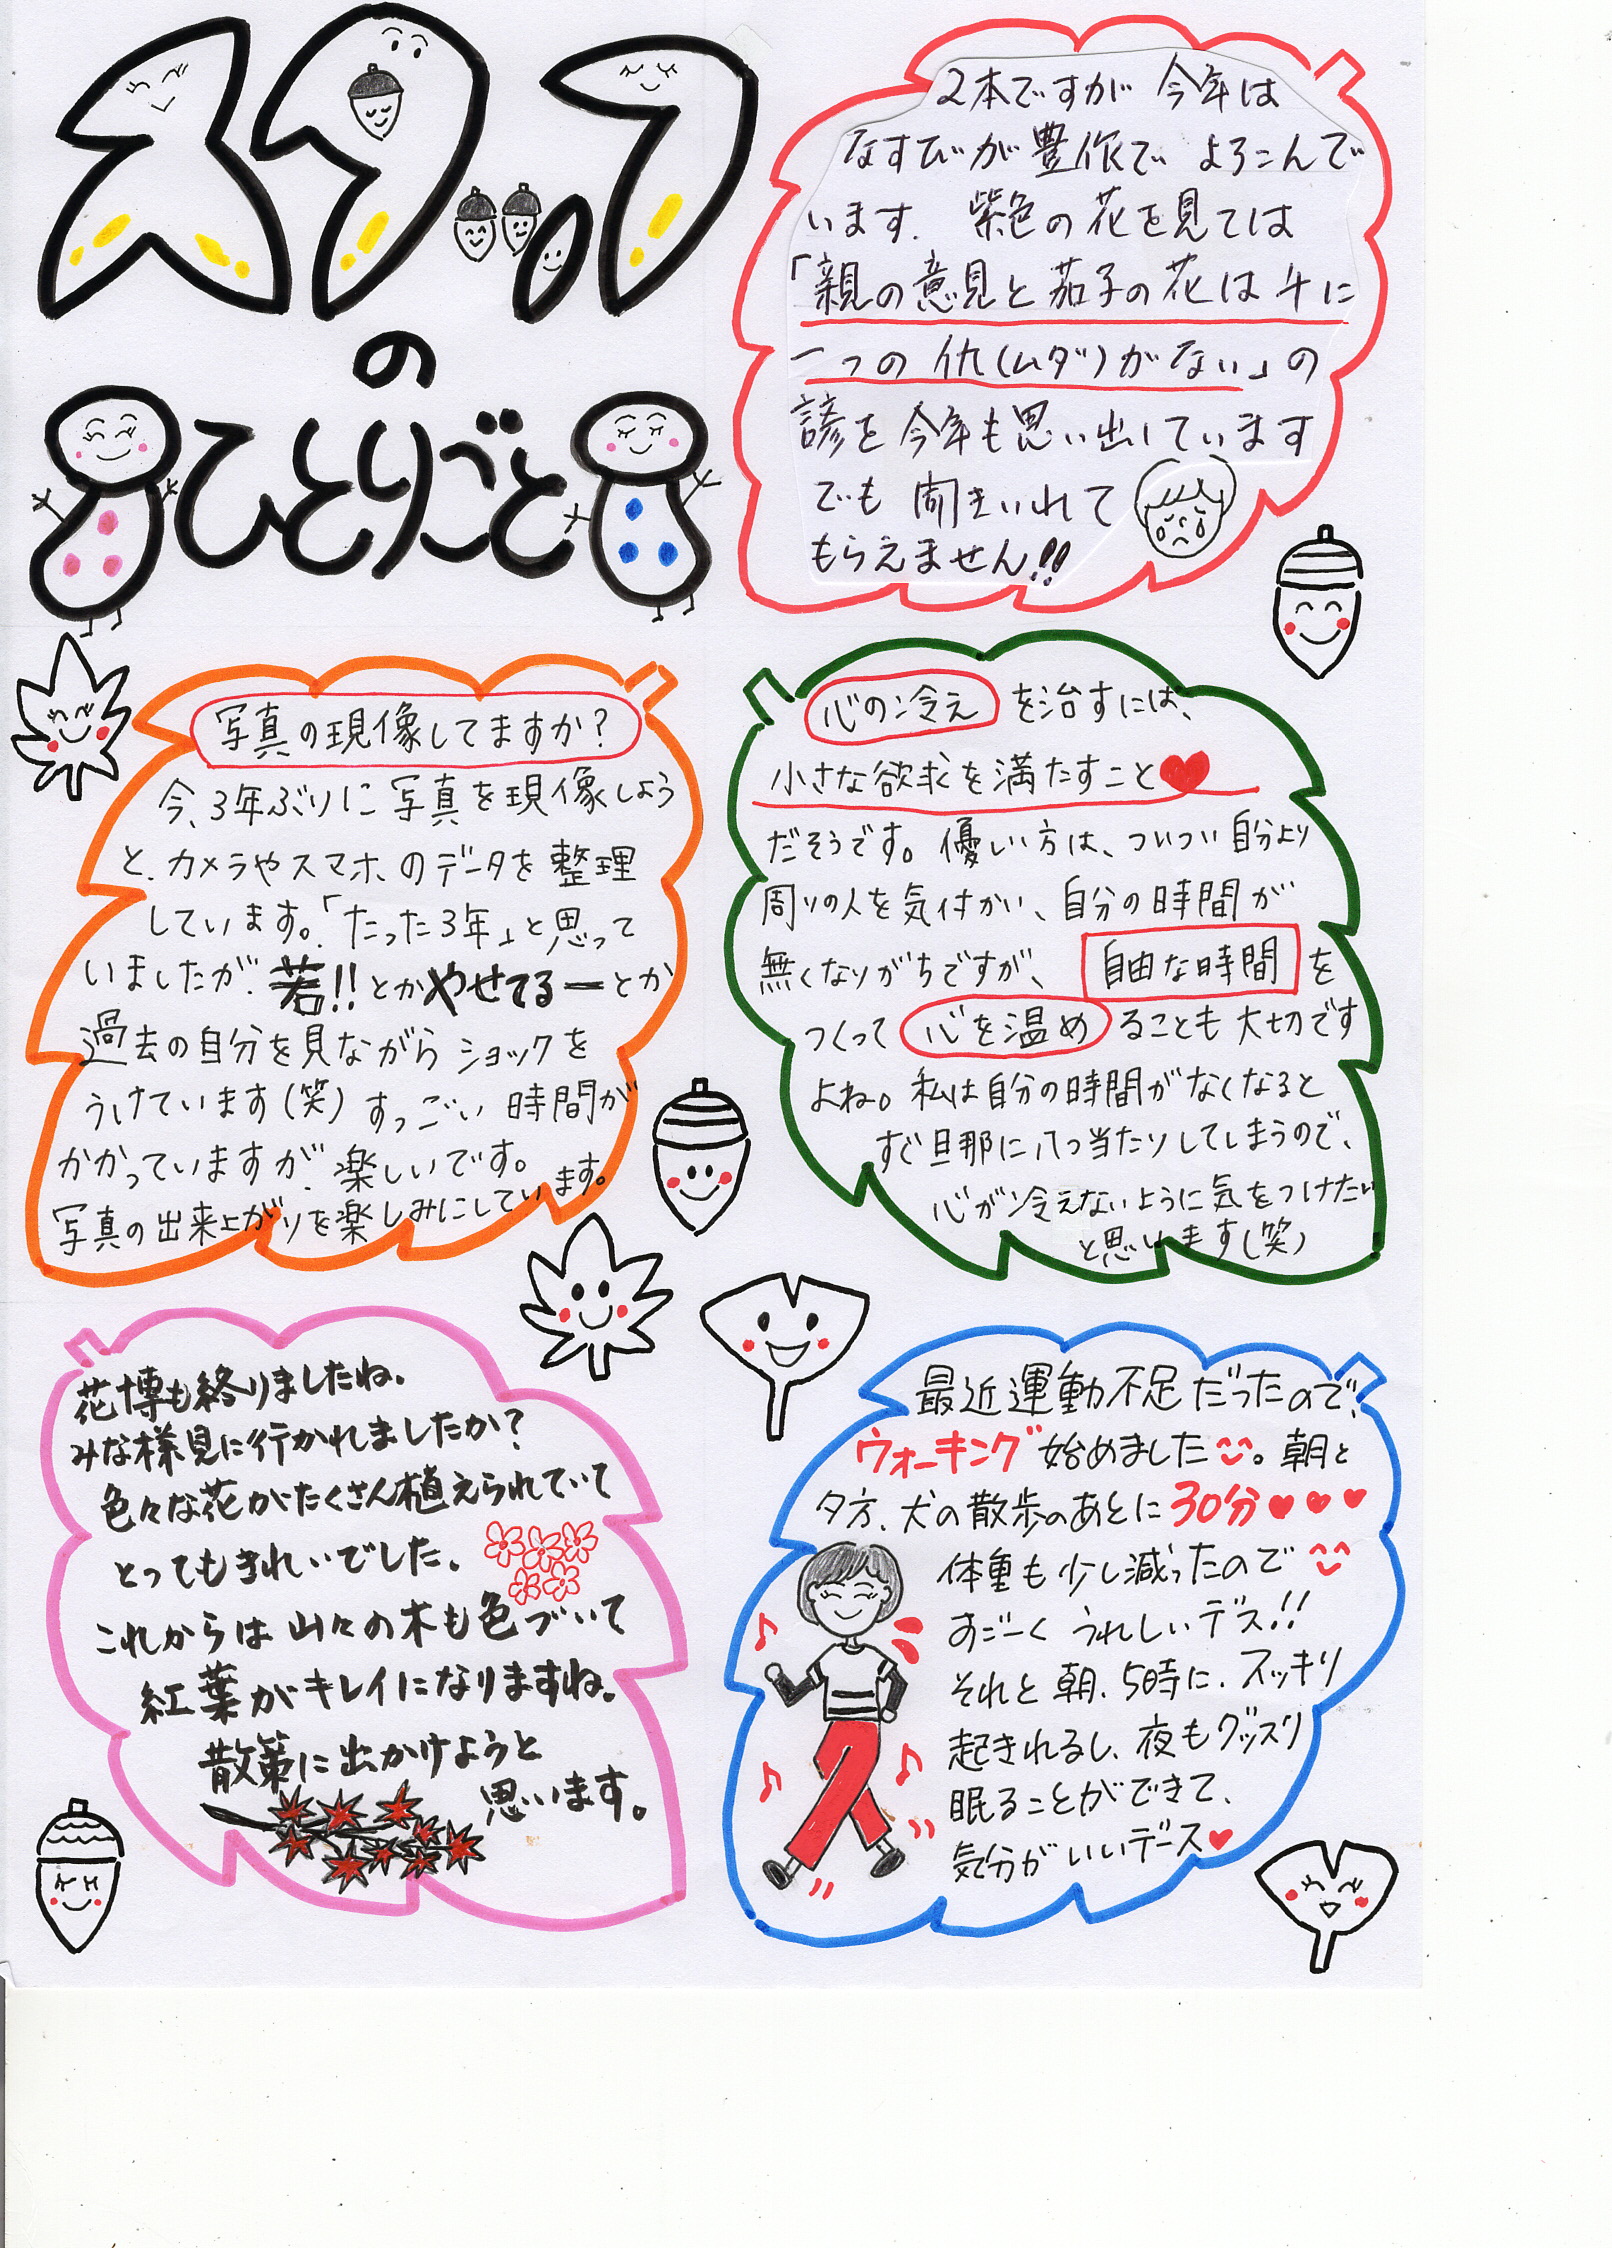 スタッフ
の
ひとりごと
2本ですが 今年は
なすびが豊作で よろこんで
います. 紫色の花を見ては
「親の意見と茄子の花は千に
一つの仇(ムダ)がない」の
諺を今年も思い出しています
でも 聞きいれて
もらえません!!
写真の現像してますか?
今、3年ぶりに写真を現像しよう
と、カメラやスマホのデータを整理
しています。「たった3年」と思って
いましたが、若!!とかやせてるーとか
過去の自分を見ながらショックを
うけています(笑) すっごい時間が
かかっていますが、楽しいです。
写真の出来上がりを楽しみにしています。
心の冷え を治すには、
小さな欲求を満たすこと♥
だそうです。優しい方は、ついつい自分より
周りの人を気付かい、自分の時間が
無くなりがちですが、自由な時間を
つくって 心を温め ることも大切です
よね。私は自分の時間がなくなると
すぐ旦那に八つ当たりしてしまうので、
心が冷えないように気をつけたい
と思います(笑)
花博も終りましたね.
みな様見に行かれましたか?
色々な花がたくさん植えられていて
とってもきれいでした.
これからは山々の木も色づいて
紅葉がキレイになりますね.
散策に出かけようと
思います。
最近運動不足だったので、
ウォーキング始めました。朝と
夕方、犬の散歩のあとに30分♥♥♥
体重も少し減ったので
すごーく うれしいデス!!
それと朝、5時に、スッキリ
起きれるし、夜もグッスリ
眠ることができて、
気分がいいデース♥